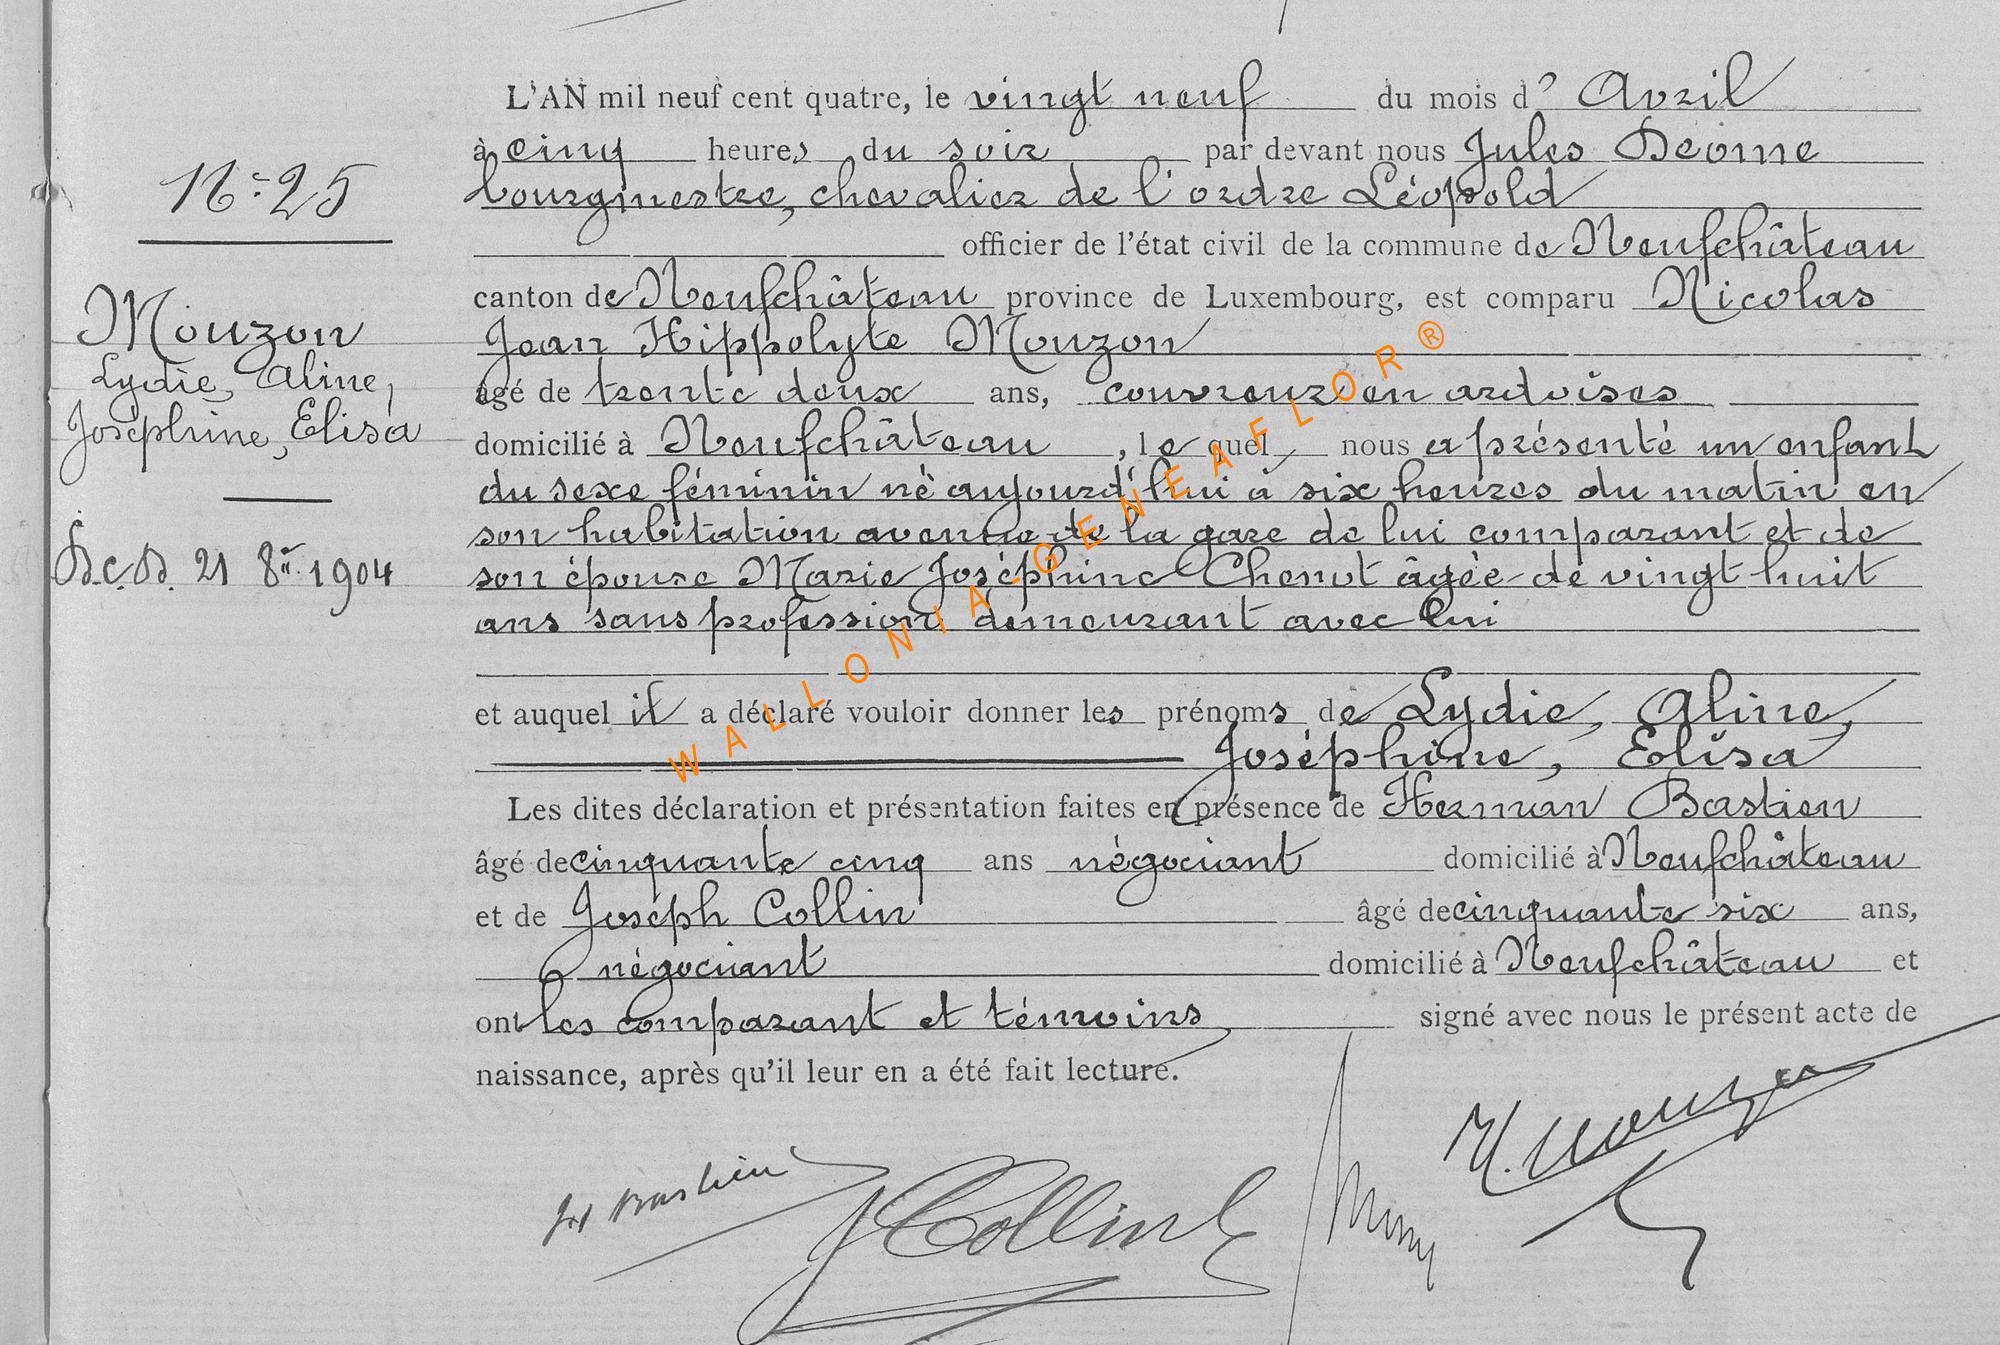 N° 25
Mouzon
Lydie, Aline,
Joséphine, Elisa
Déc. D. 21 8re 1904
L'AN mil neuf cent quatre, le vingt neuf du mois d' Avril
à cinq heures du soir par devant nous Jules Deome
bourgmestre, chevalier de l'ordre Léopold
officier de l'état civil de la commune de Neufchâteau
canton de Neufchâteau province de Luxembourg, est comparu Nicolas
Jean Hippolyte Mouzon
âgé de trente deux ans, couvreur en ardoises
domicilié à Neufchâteau, le quel nous a présenté un enfant
du sexe féminin né aujourd'hui à six heures du matin en
son habitation avenue de la gare de lui comparant et de
son épouse Marie Joséphine Chenot âgée de vingt huit
ans sans profession demeurant avec lui
et auquel il a déclaré vouloir donner les prénoms de Lydie, Aline,
Joséphine, Elisa
Les dites déclaration et présentation faites en présence de Herman Bastien
âgé de cinquante cinq ans négociant domicilié à Neufchâteau
et de Joseph Collin âgé de cinquante six ans,
négociant domicilié à Neufchâteau et
ont les comparant et témoins signé avec nous le présent acte de
naissance, après qu'il leur en a été fait lecture.
Bastien
J Collin
H. Mouzon
WALLONIA-GENEAFLOR®